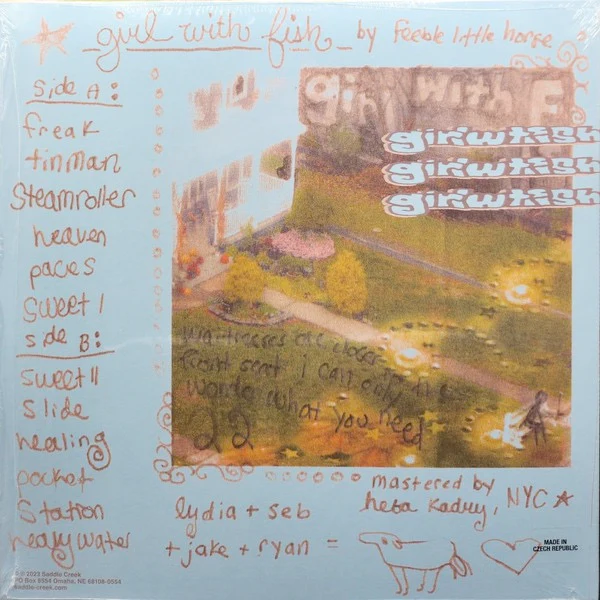 girl with fish by feeble little horse
Side A:
freak
tinman
Steamroller
heaven
paces
Sweet I
Side B:
sweet II
Slide
healing
pocket
Station
heavy water
girl with F
girlwfish
girlwfish
girlwfish
waitresses are closer to the
front seat i can only
wonder what you need
22
mastered by
heba Kadry, NYC
lydia + seb
+ jake + ryan =
MADE IN
CZECH REPUBLIC
℗ © 2023 Saddle Creek
PO Box 8554 Omaha, NE 68108-0554
saddle-creek.com